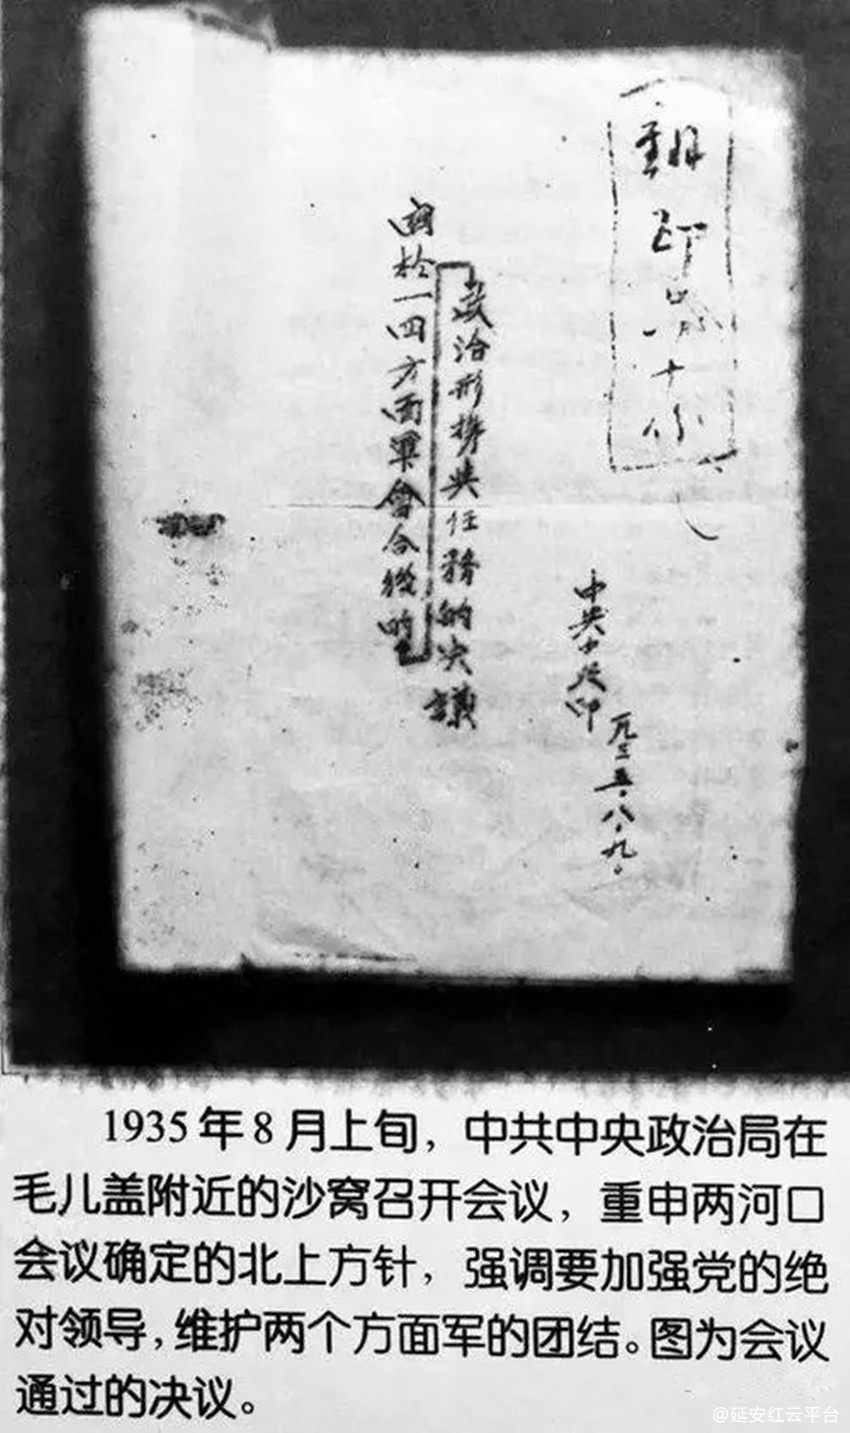 翻印
十份
一九三五.八.九.
中央
印
關於一四方面軍會合後的
政治形势与任務的决議
1935年8月上旬，中共中央政治局在
毛儿盖附近的沙窝召开会议，重申两河口
会议确定的北上方针，强调要加强党的绝
对领导，维护两个方面军的团结。图为会议
通过的决议。
@延安红云平台